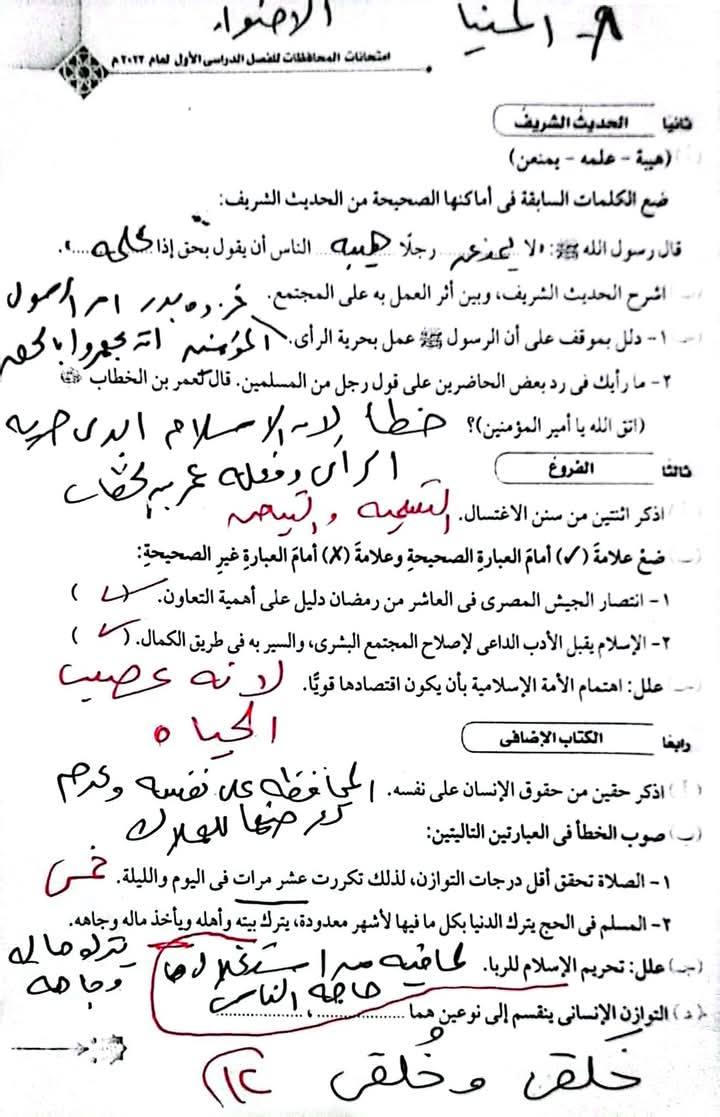 ٩- المنيا الاضواء
امتحانات المحافظات للفصل الدراسى الأول لعام ٢٠٢٢ م
ثانيا الحديث الشريف
( أ ) (هيبة - علمه - يمنعن)
ضع الكلمات السابقة فى أماكنها الصحيحة من الحديث الشريف:
قال رسول الله ﷺ: «لا يمنعن رجلًا هيبه الناس أن يقول بحق إذا علمه».
(ب) اشرح الحديث الشريف، وبين أثر العمل به على المجتمع. غزوه بدر امر الرسول
(جـ) ١- دلل بموقف على أن الرسول ﷺ عمل بحرية الرأى. المؤمنين ان
٢- ما رأيك فى رد بعض الحاضرين على قول رجل من المسلمين. قال لعمر بن الخطاب
(اتق الله يا أمير المؤمنين)؟ خطأ لان الاسلام ابدى حريه
الرأى وفعله عمر بن الخطاب
ثالثا الفروع
( أ ) اذكر اثنتين من سنن الاغتسال. التسميه والتيامن
(ب) ضعْ علامةَ (✓) أمامَ العبارةِ الصحيحةِ وعلامةَ (✗) أمامَ العبارةِ غيرِ الصحيحةِ:
١- انتصار الجيش المصرى فى العاشر من رمضان دليل على أهمية التعاون. (✓)
٢- الإسلام يقبل الأدب الداعى لإصلاح المجتمع البشرى، والسير به فى طريق الكمال. (✓)
(جـ) علل: اهتمام الأمة الإسلامية بأن يكون اقتصادها قويًّا. لانه عصب
الحياه
رابعا الكتاب الإضافى
( أ ) اذكر حقين من حقوق الإنسان على نفسه. المحافظه على نفسه وعدم
تعرضها للهلاك
(ب) صوب الخطأ فى العبارتين التاليتين:
١- الصلاة تحقق أقل درجات التوازن، لذلك تكررت عشر مرات فى اليوم والليلة. خمس
٢- المسلم فى الحج يترك الدنيا بكل ما فيها لأشهر معدودة، يترك بيته وأهله ويأخذ ماله وجاهه.
يترك ماله وجاهه
(جـ) علل: تحريم الإسلام للربا. لما فيه من استغلال
حاجه الناس
(د) التوازن الإنسانى ينقسم إلى نوعين هما ............... ، ...............
خَلقى وخُلقى (١٢